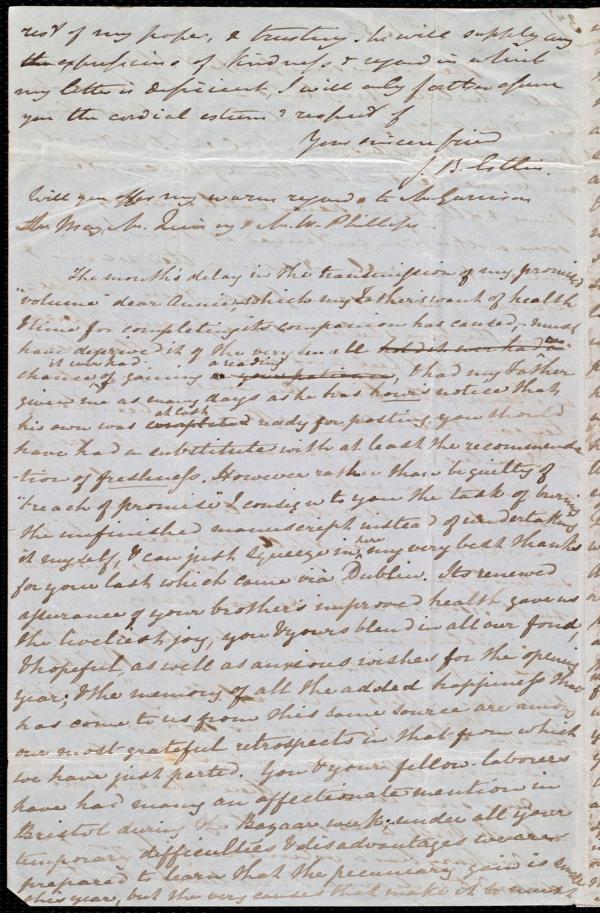 rest of my paper, & trusting he will supply any
the expressions of kindness & regard in which
my letter is deficient, I will only further assure
you the cordial esteem & respect of
Your sincere friend
J. B. Estlin.
Will you offer my warm regards to Mr Garrison
Mr May, Mr. Quincy & Mr. W. Phillips.
The month's delay in the transmission of my promised
"volume" dear Annie, which my Father's want of health
& time for completing its companion has caused, must
have deprived it of the very small
it ever had a reading
chance of gaining your patience, & had my Father
given me as many days as he has hours notice that
at last
his own was completed ready for posting, you should
have had a substitute with at least the recommenda-
-tion of freshness. However rather than be guilty of
"breach of promise" I consign to you the task of burning
the unfinished manuscript instead of undertaking
it myself, & can just squeeze in here my very best thanks
for your last which came via Dublin. Its renewed
assurance of your brother's improved health gave us
the liveliest joy, you & yours blend in all our fond,
& hopeful, as well as anxious wishes for the opening
year; & the memory of all the added happiness that
has come to us from this same source are among
our most grateful retrospects in that from which
we have just parted. You & your fellow-laborers
have had many an affectionate mention in
Bristol during the Bazaar week; under all your
temporary difficulties & disadvantages we are
prepared to learn that the pecuniary gain is small
this year, but the very causes that make it so must